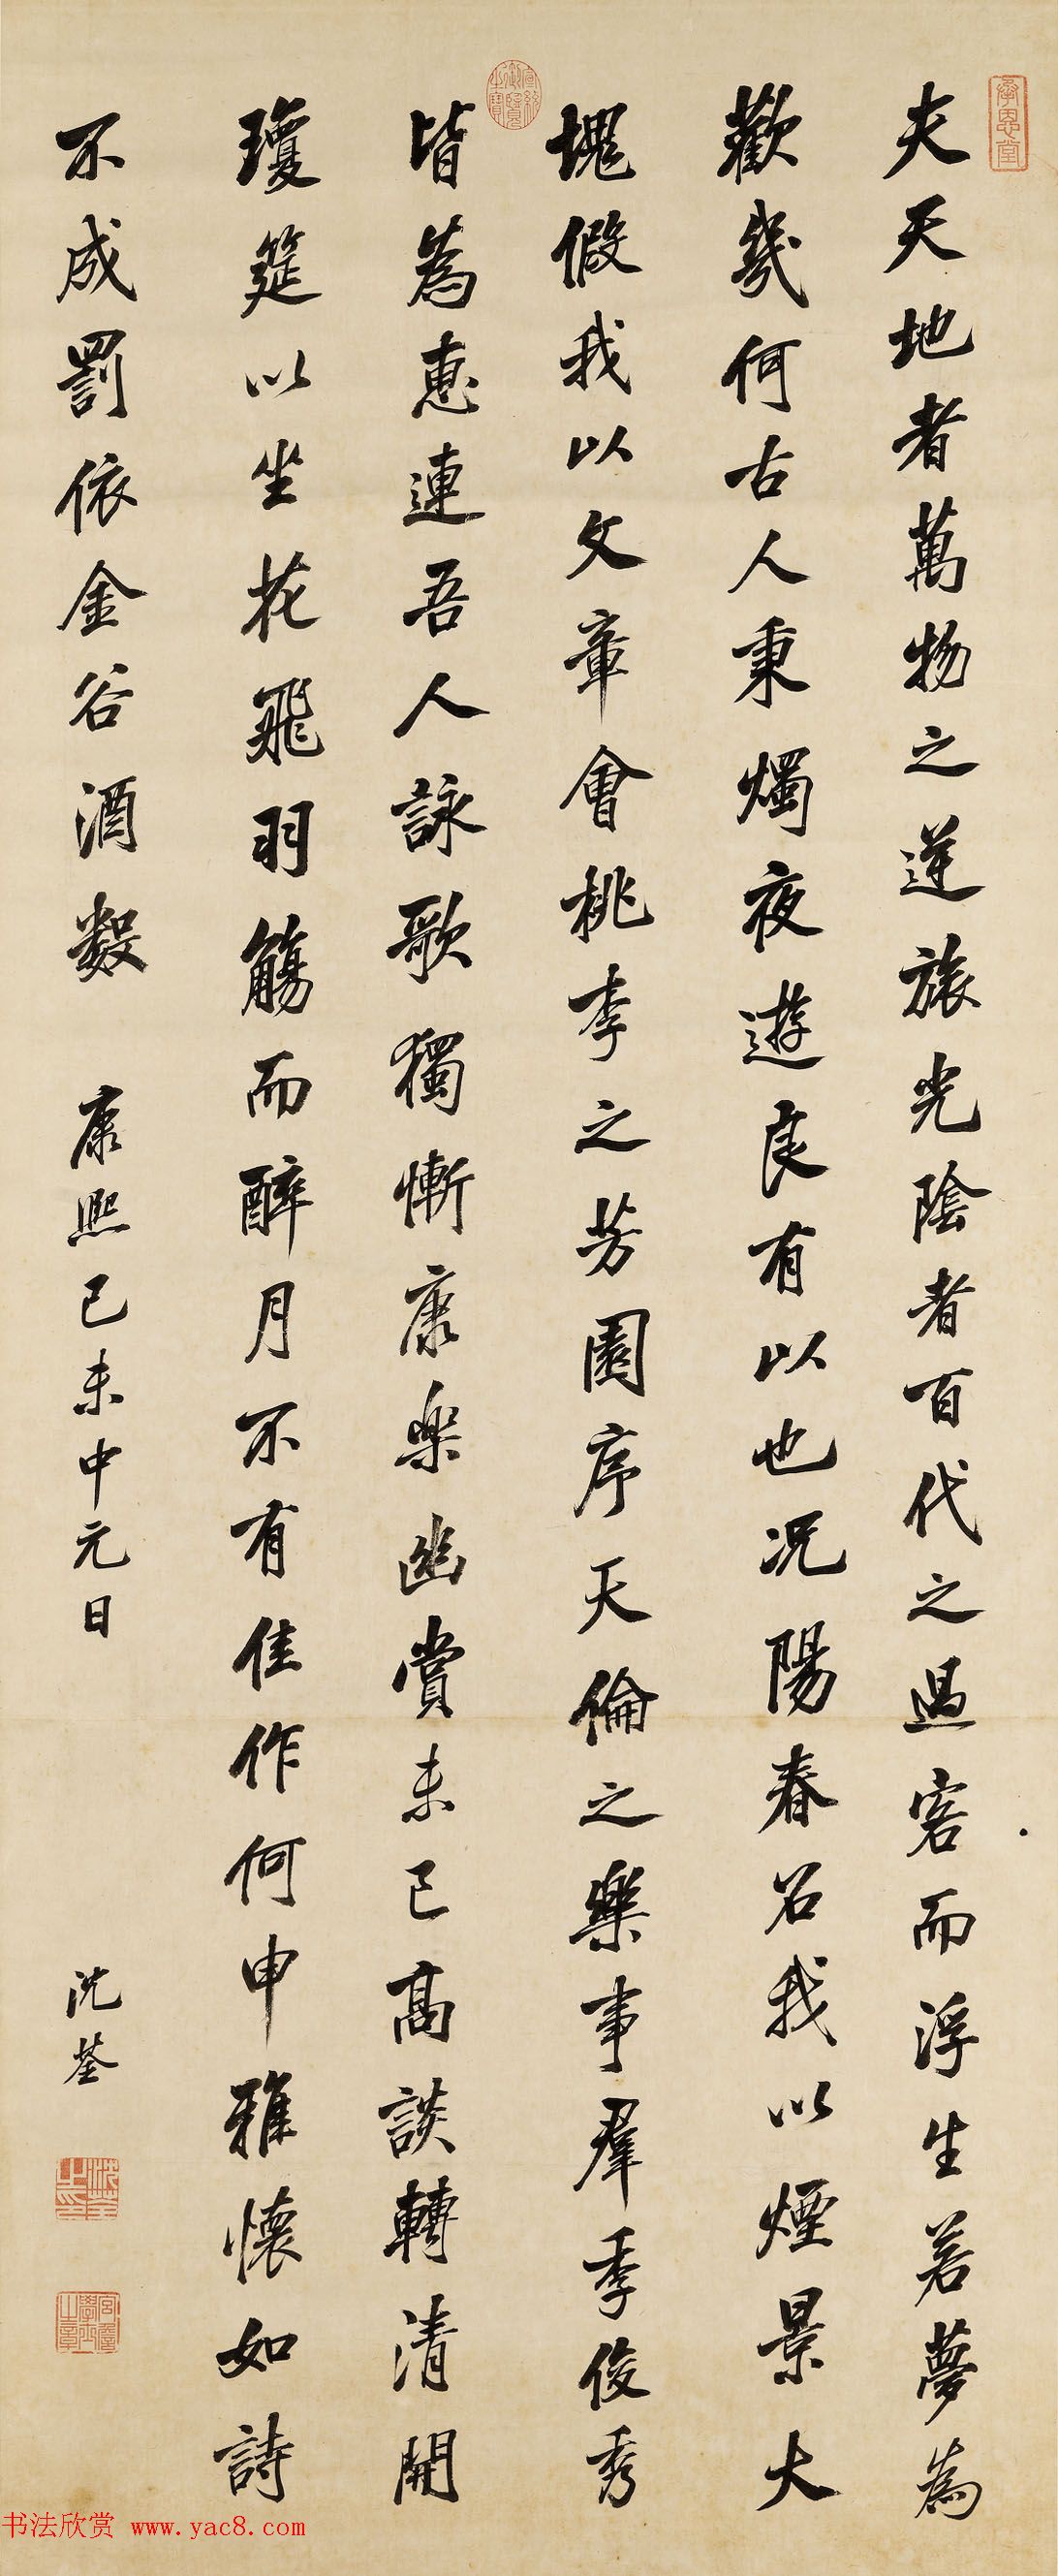 承恩堂
夫天地者萬物之逆旅光陰者百代之過客而浮生若夢為
歡幾何古人秉燭夜遊良有以也况陽春召我以煙景大
塊假我以文章會桃李之芳園序天倫之樂事羣季俊秀
宣統御覽之寶
皆為惠連吾人詠歌獨慚康樂幽賞未已高談轉清開
瓊筵以坐花飛羽觴而醉月不有佳作何申雅懷如詩
不成罰依金谷酒數 康熙己未中元日 沈荃
沈荃之印
宮詹學士之章
书法欣赏 www.yac8.com